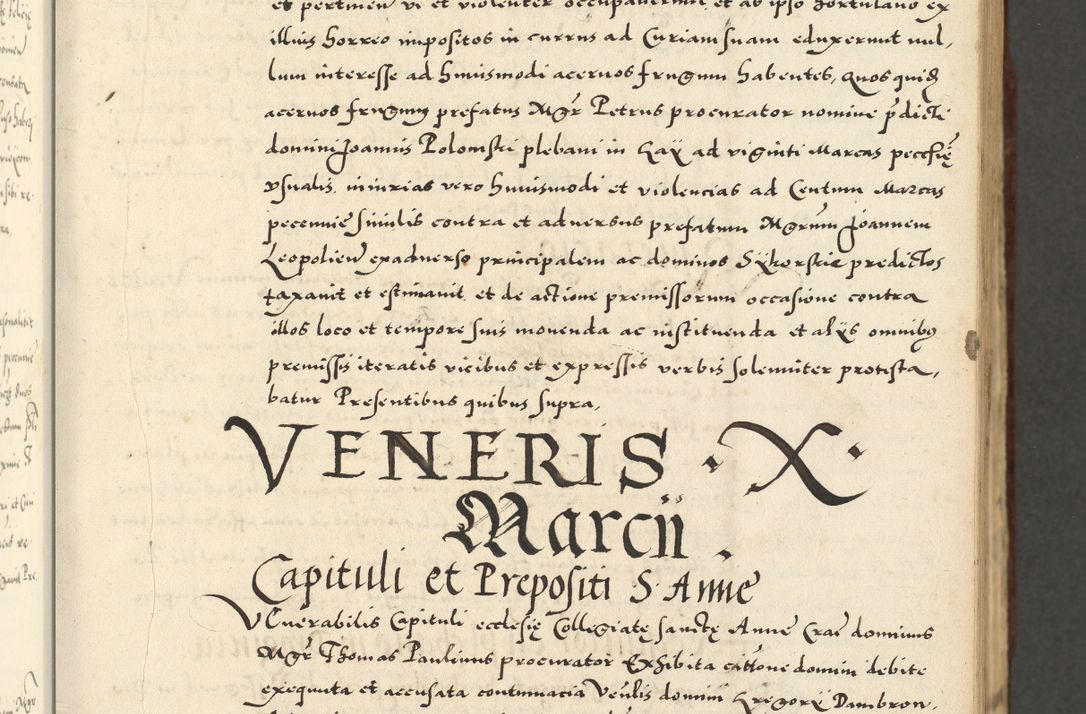 et pertinen vi et violenter occupaverunt et ab ipso hortulano ex
illius horreo impositos in currus ad Curiam suam eduxerunt nul,
lum interesse ad huiusmodi acervos frugum habentes, Quos quid
acervos frugum prefatus Mgr Petrus procurator nomine pdicti
domini Joannis Polomski plebani in Gay ad viginti Marcas pecunię
vsualis, iniurias vero huiusmodi et violencias ad Centum Marcas
pecunię similis contra et adversus prefatum Mgrum Joannem
Leopolien exadverso principalem ac dominos Sykorskie predictos
taxavit et estimavit et de actione premissorum occasione contra
illos loco et tempore suis movenda ac instituenda et alÿs omnibus
premissis iteratis vicibus et expressis verbis solemniter protesta,
batur Presentibus quibus supra,
VENERIS · X ·
Marcii .
Capituli et Prepositi S. Anne
VEnerabilis Capituli ecclesię Collegiatę sanctę Anne Crac dominus
Mgr Thomas Paulinus procurator Exhibita cattone domini debite
exequuta et accusata contumacia Venlis domini Grigorÿ Dambron,